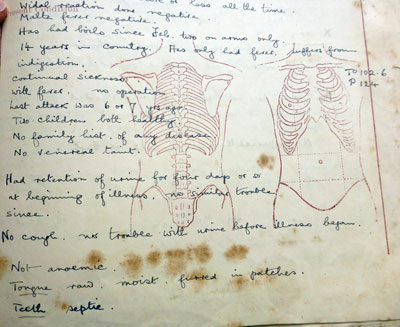 Condition
or less all the time.
Widal reaction done negative.
Malta fever negative.
Has had boils since Feb. two on arms only.
14 years in country. Has only had fever. Suffers from
indigestion.
Continual sickness
with fever. no operation
T° 102.6
P 124
Last attack was 6 or 7 yrs ago
Two children both healthy.
No family hist. of any disease
No venereal taint.
Had retention of urine for four days or so
at beginning of illness. no similar trouble
since.
No cough. nor trouble with urine before illness began.
Not anaemic.
Tongue raw. moist. furred in patches.
Teeth septic.